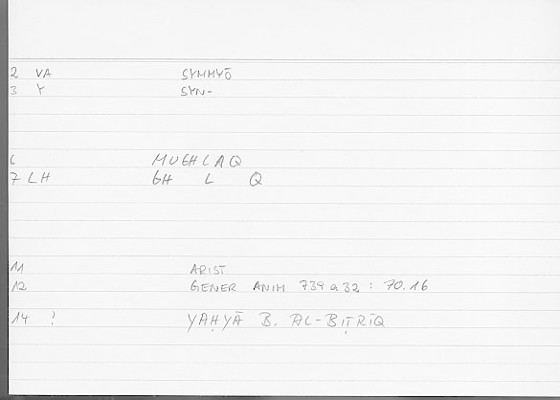 2 VA SYMMYŌ
3 Y SYN-
6 MUGHLAQ
7 LH GH L Q
11 ARIST
12 GENER ANIM 739 a 32 : 70.16
14 ! YAḤYĀ B. AL-BIṬRĪQ